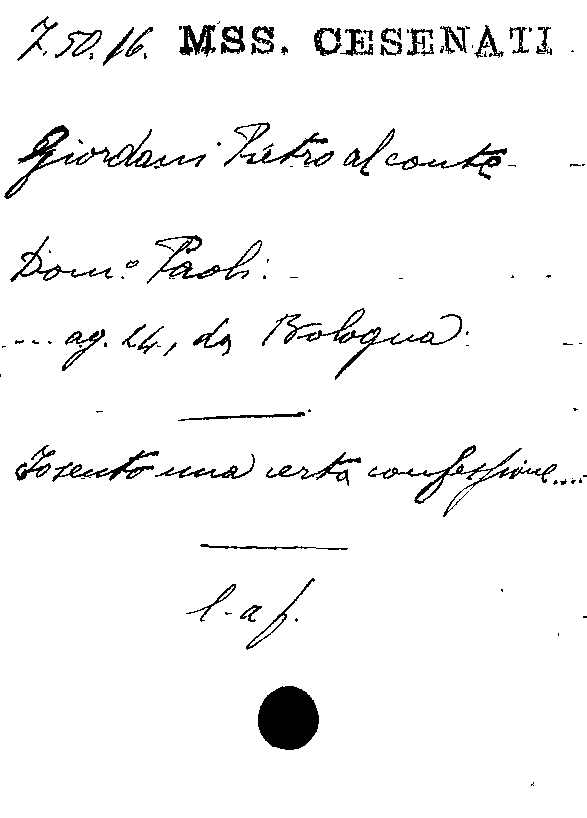 7.50.16. MSS. CESENATI
Giordani Pietro al conte
Dom.º Paoli.
... ag. 24, da Bologna.
Io sento una certa confessione....
l. a f.